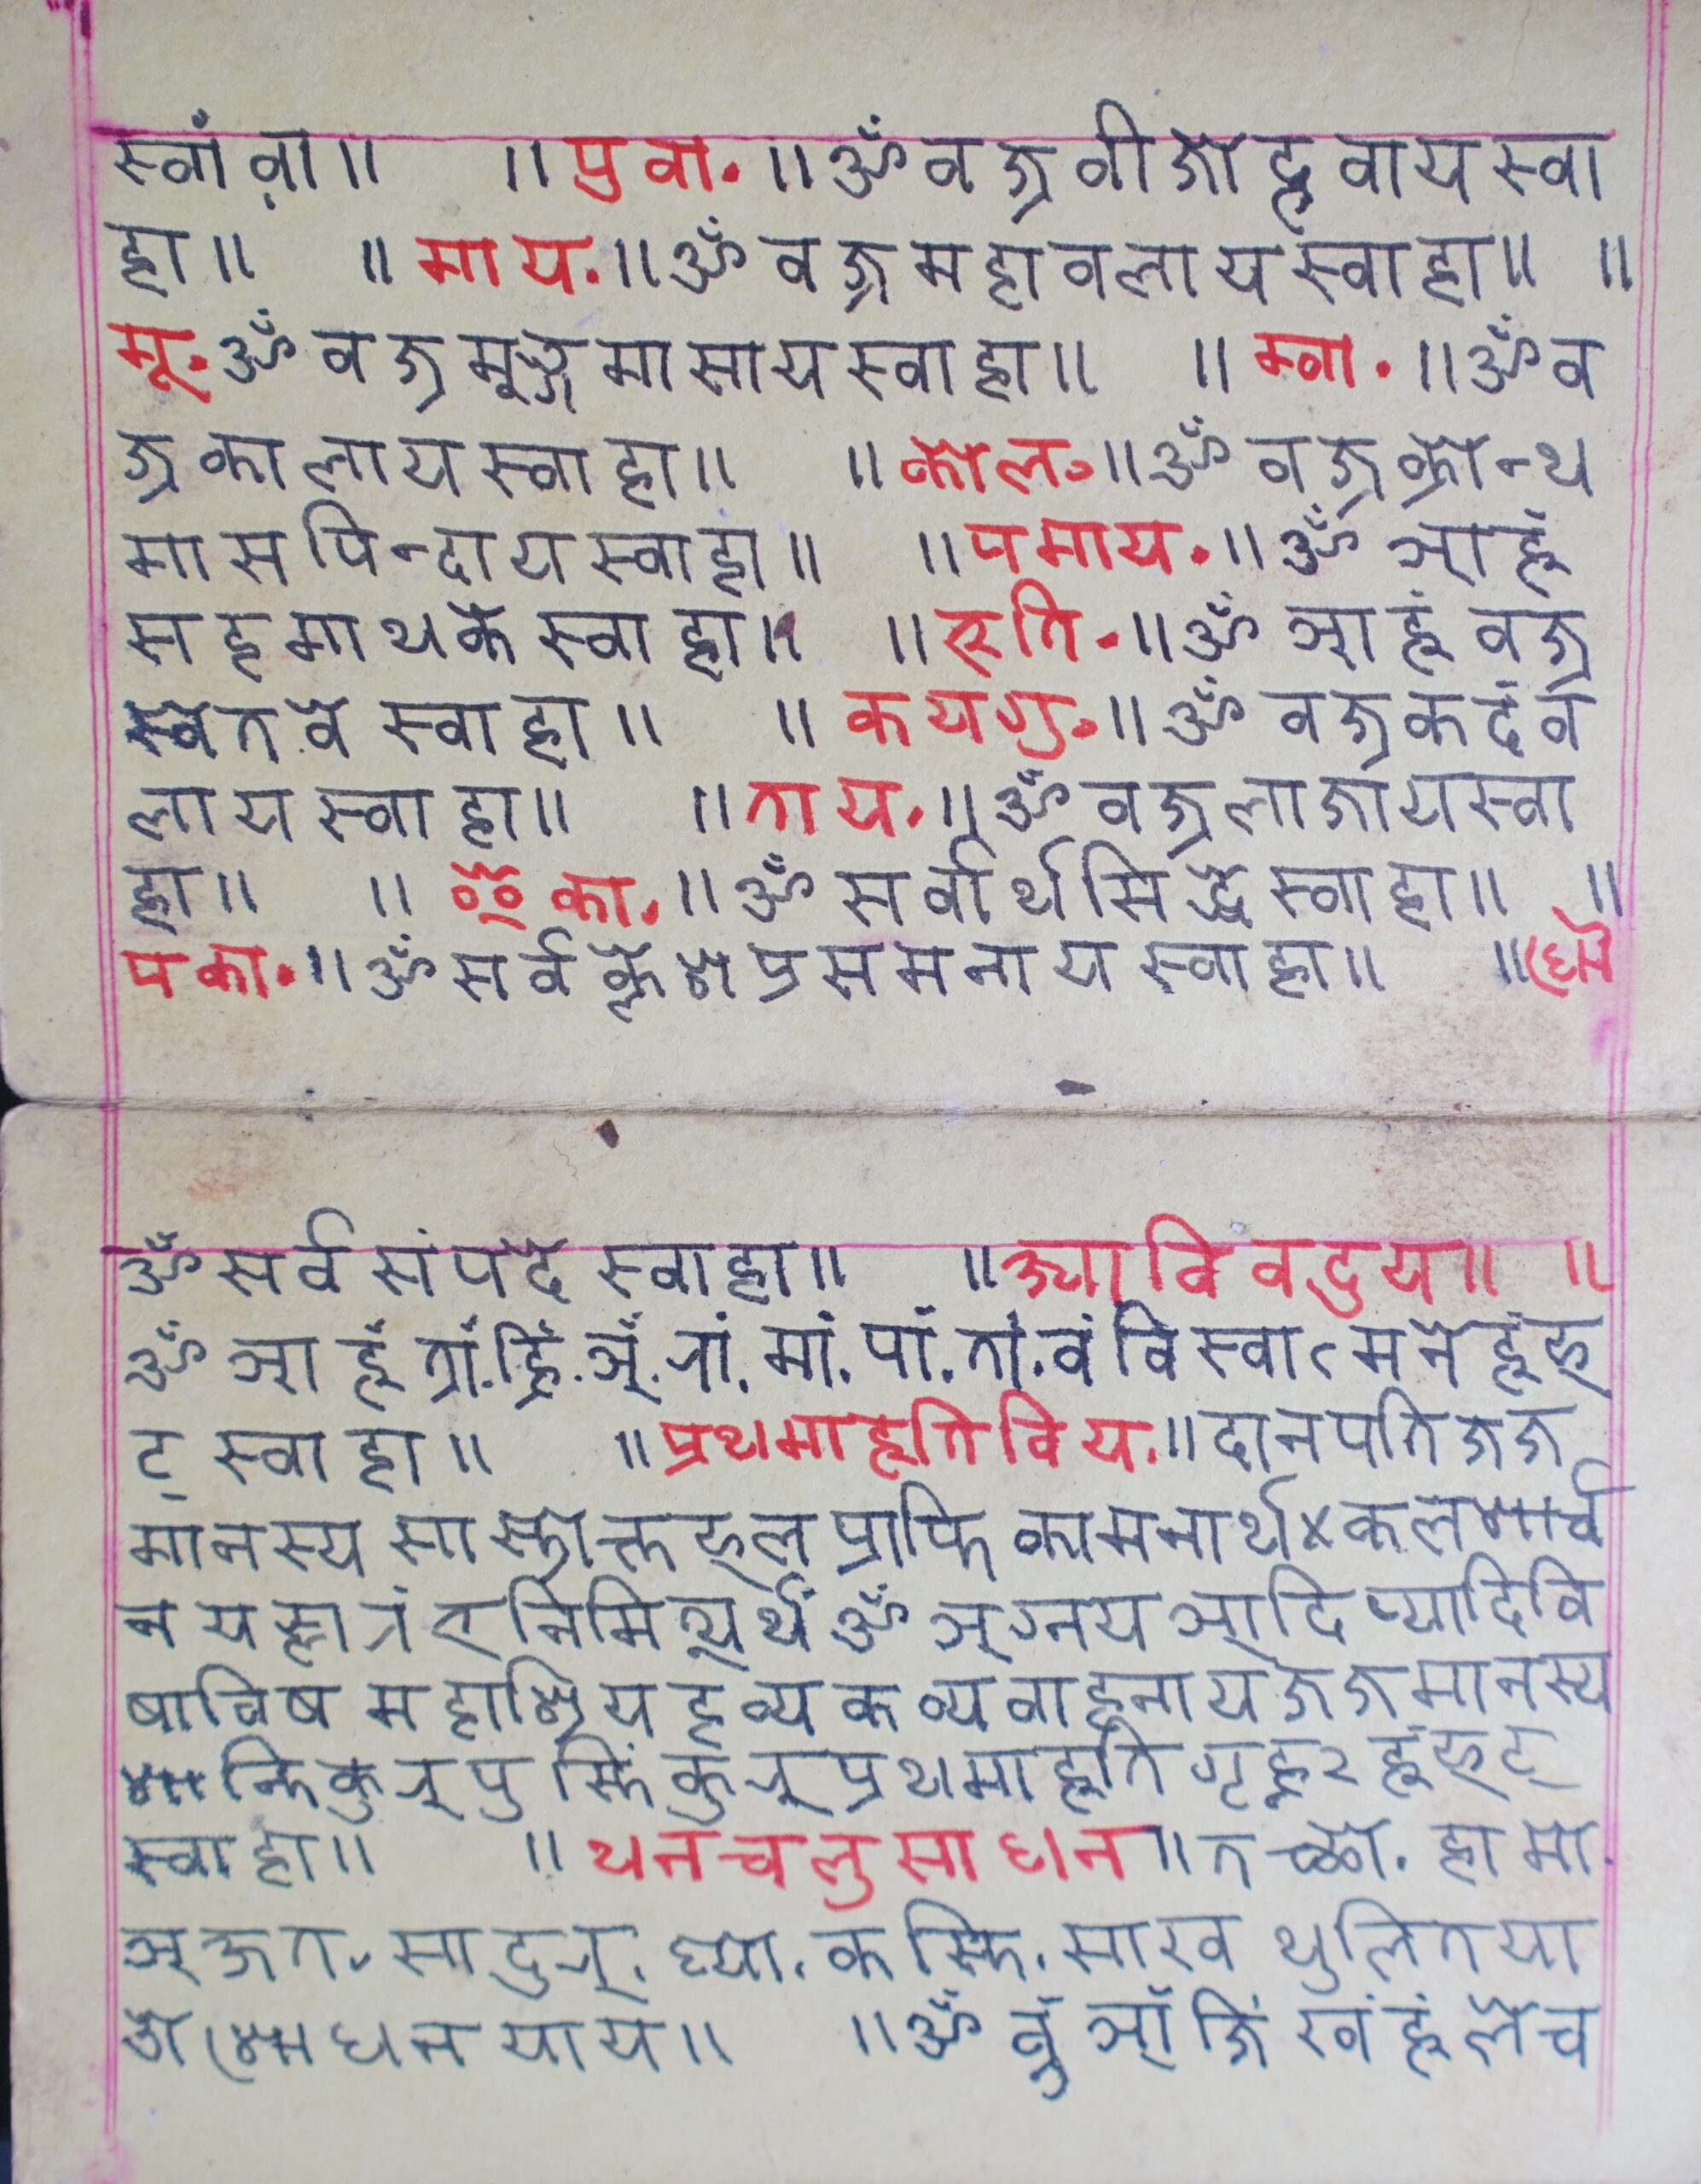 स्वाँ वा॥ ॥पुवा.॥ॐ वज्रवीजोद्भवाय स्वा
हा॥ ॥माय.॥ॐ वज्रमहावलाय स्वाहा॥ ॥
मू.ॐ वज्रमूङ्गमासाय स्वाहा॥ ॥म्वा.॥ॐ व
ज्रकालाय स्वाहा॥ ॥कोल.॥ॐ वज्रक्रोन्थ
मासपिन्दाय स्वाहा॥ ॥पमाय.॥ॐ आहूं
सहमाथके स्वाहा॥ ॥एति.॥ॐ आहूं वज्र
स्वेतवे स्वाहा॥ ॥कयगु.॥ॐ वज्रकदंव
लाय स्वाहा॥ ॥ताय.॥ॐ वज्रलाजाय स्वा
हा॥ ॥ का.॥ॐ सर्वार्थसिद्धे स्वाहा॥ ॥
पका.॥ॐ सर्वक्लेशप्रसमनाय स्वाहा॥ ॥धौ
ॐ सर्वसंपदे स्वाहा॥ ॥ वदुय॥ ॥
ॐ आहूं त्रां.ह्रिं.अँ.रां.मां.पां.तां.वं विस्वात्मने हूं फ
ट् स्वाहा॥ ॥प्रथमाहुति विय.॥दानपति जज
मानस्य सास्त्रोक्त फल प्राप्ति कामनार्थ ४ कलशार्च
न निमित्यर्थं ॐ अग्नय आदिप्यादिवि
षाविष महाश्रिय हव्यकव्यवाहनाय जजमानस्य
शान्तिकुरु पुस्तिंकुरु प्रथमाहुति गृह्न२ हूं फट्
स्वाहा॥ ॥थनचनुसाधन॥तच्छो. हामो.
अजत. सादुरु. घ्या. कस्ति. साख थुलितया
ओ शोधन याय॥ ॥ॐ व्रुं आँ जिं खं हूं लेच